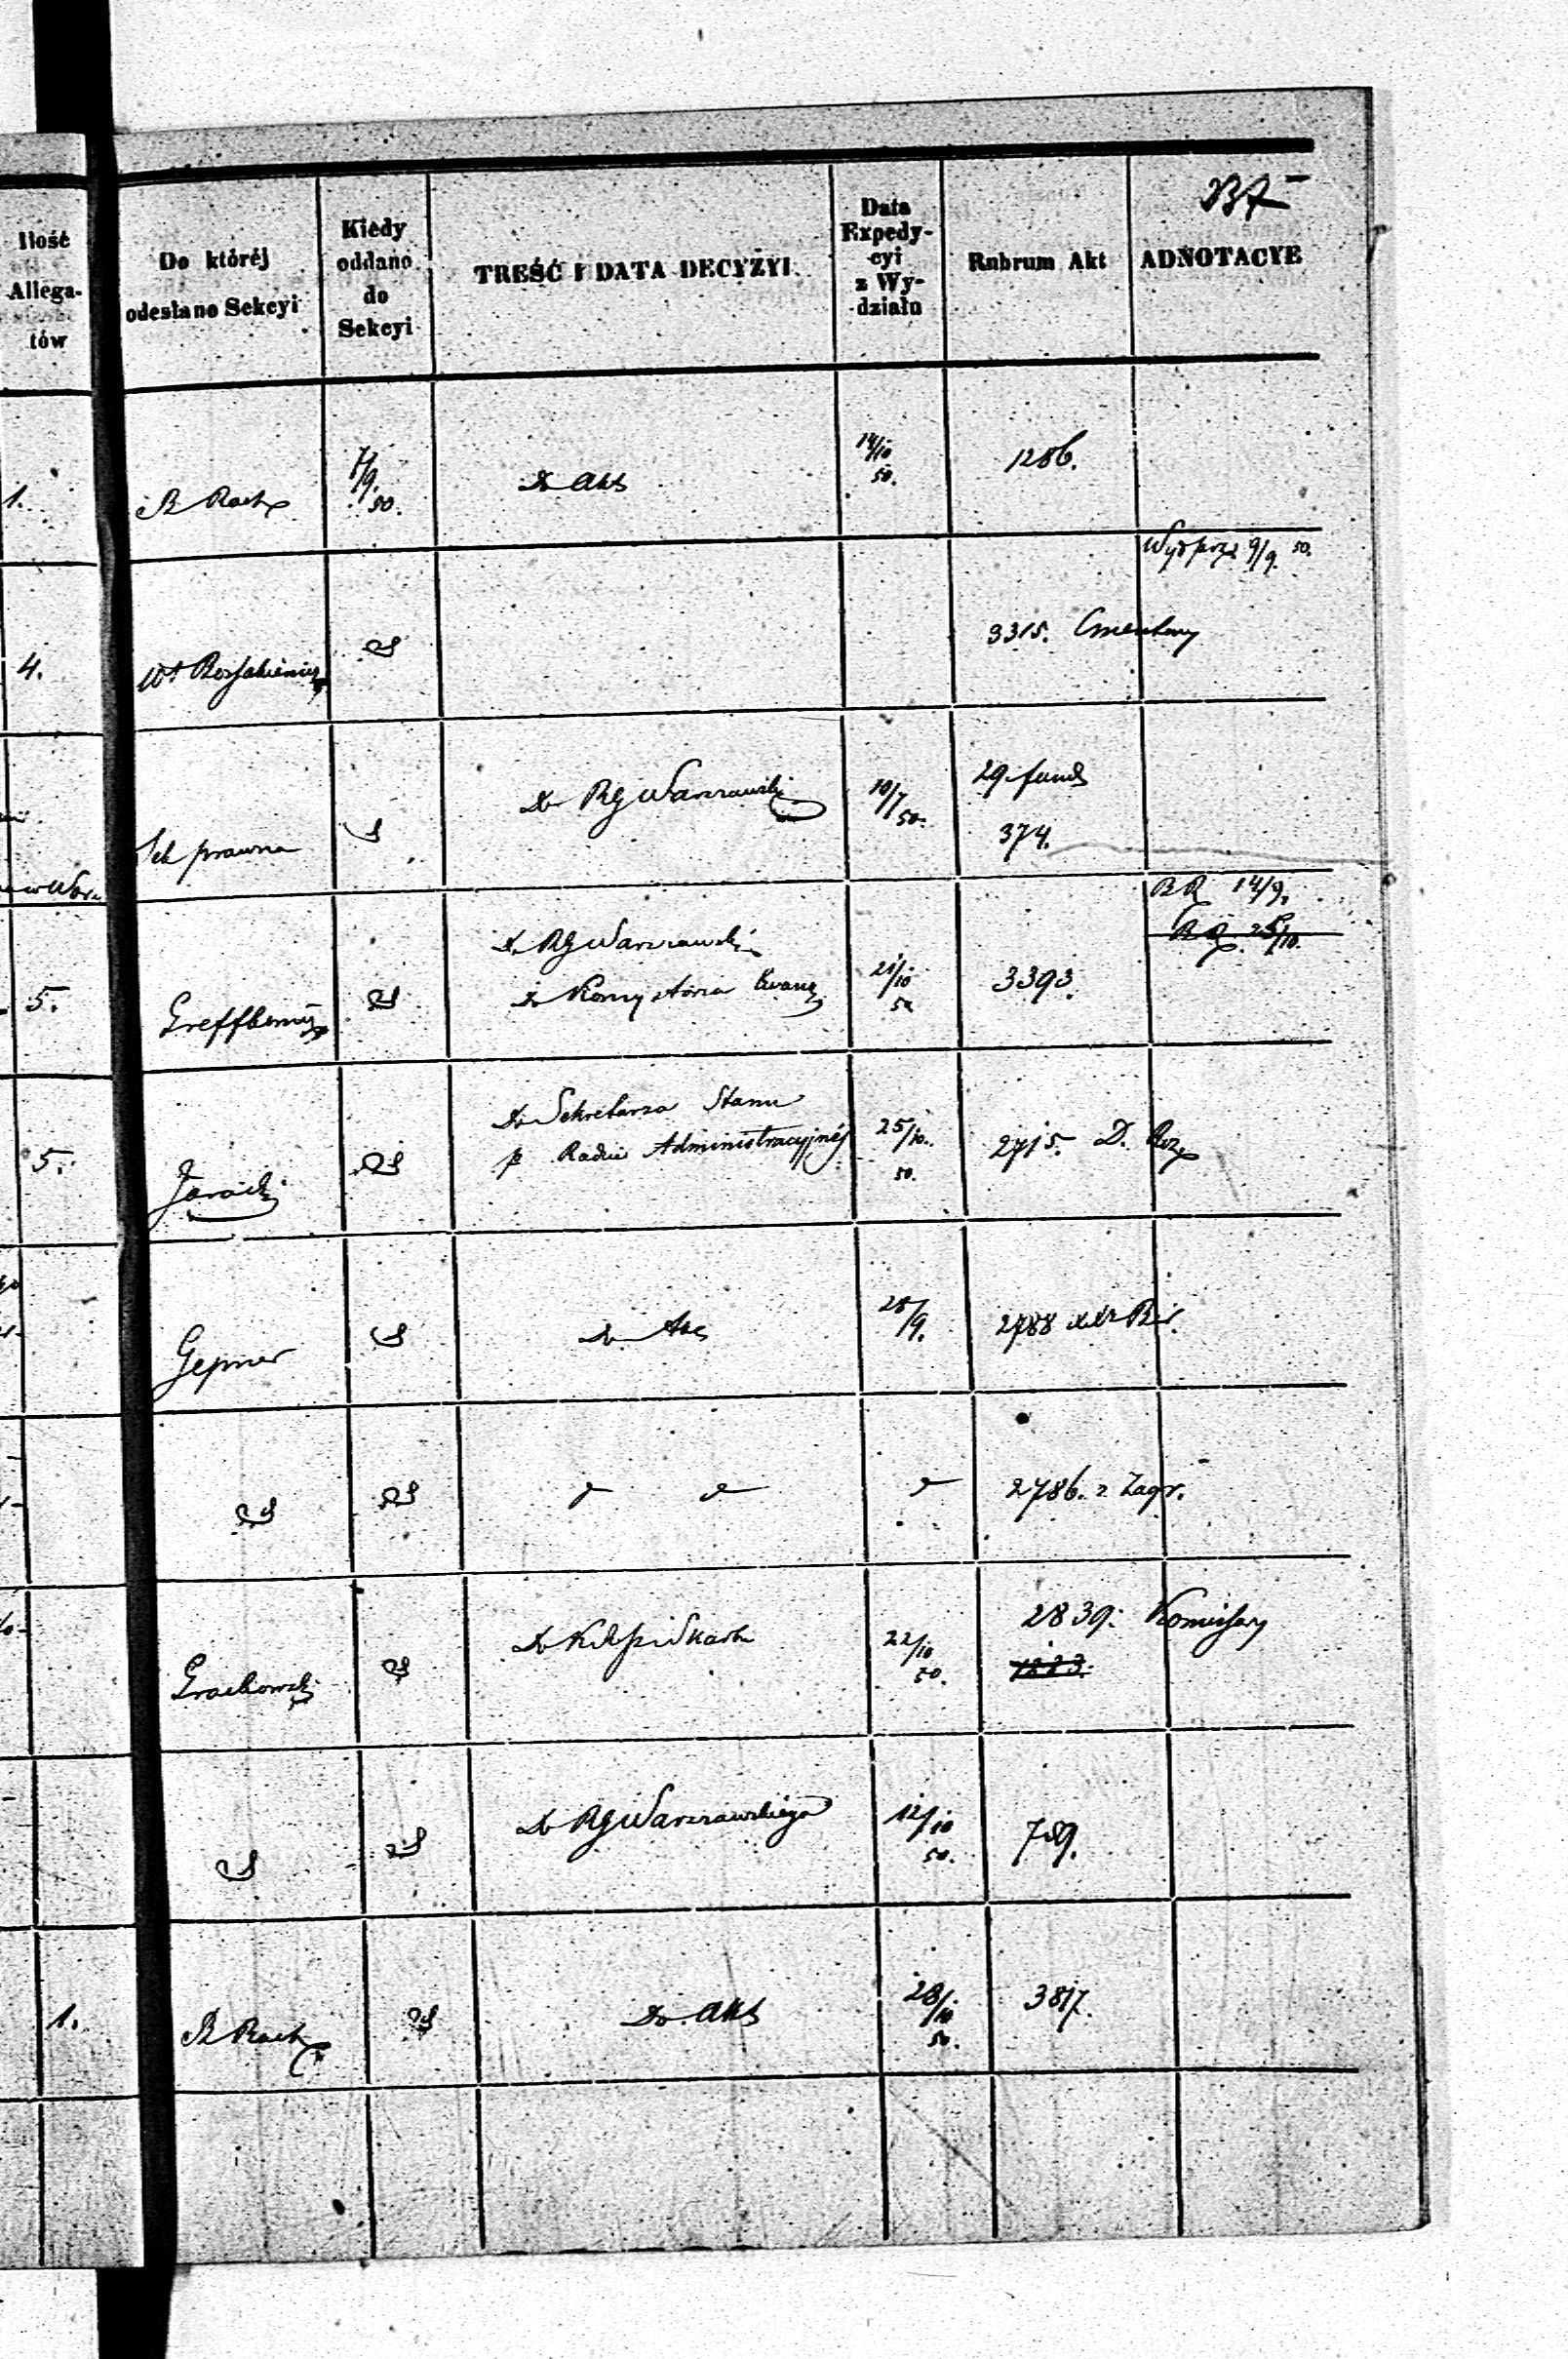 137
Ilość
Allega-
tów
Do któréj
odesłano Sekcyi
Kiedy
oddano
do
Sekcyi
TREŚĆ I DATA DECYZYI
Data
Expedy-
cyi
z Wy-
działu
Rubrum Akt
ADNOTACYE
1.
B Rach
7/9.
50.
Do Akt
14/10
50.
1286.
4.
3315. Cmentarz
9/9. 50.
Sek prawna
Do RG Warszawski
10/7
50.
29 fund
374.
5.
Do RG Warszawski
Do Konsystorza Ewang
21/10
50
3393.
BR 14/9.
BR 25/10.
5.
Jaracki
Do Sekretarza Stanu
p Radzie Administracyjnéj
25/10.
50.
2715. D.
Gepner
Do Akt
28/9.
2788
2786. z Zagr.
Grachowski
Do K R P i Skarbu
22/10
50.
2839. Komissarz
1223.
Do RG Warszawskiego
12/10
50.
789.
1.
B Rach
Do Akt
28/10
50.
3817.